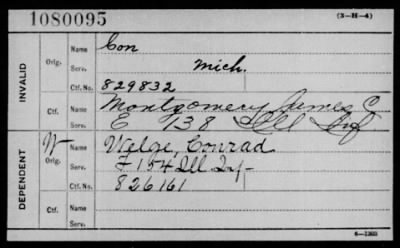 1080095
(3-H-4)
INVALID
Orig.
Name Con
Serv. Mich.
Ctf. No. 829832
Ctf.
Name Montgomery, James C
Serv. E 138 Ill Inf
DEPENDENT
W
Orig.
Name Welge, Conrad
Serv. F 154 Ill Inf
Ctf. No. 826161
Ctf.
Name
Serv.